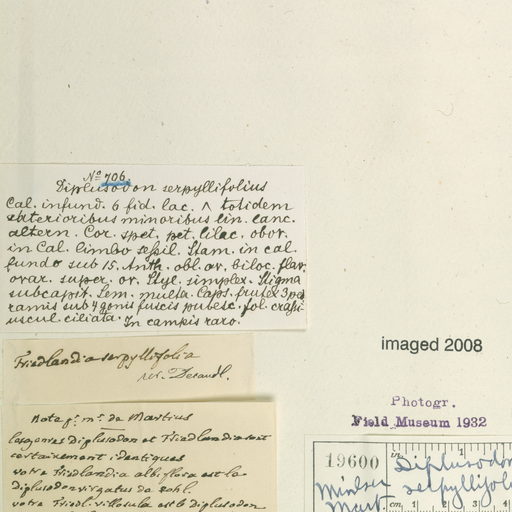 No 706.
Diplusodon serpyllifolius
Cal. infund. 6 fid. lac. ^ totidem
exterioribus minoribus lin. lanc.
altern. Cor. 6pet. pet. lilac. obov.
in Cal. limbo sessil. Stam. in cal.
fundo sub 15. Anth. obl. ov. biloc. flav.
ovar. super. ov. Styl. simplex. Stigma
subcapit. Sem. multa. Caps. frutex 3ped
ramis sub 4gonis fuscis pubesc. fol. crassi
uscul. ciliata.
In campis raro.
Friedlandia serpyllifolia
Decandl.
Note pr. mr. de Martius
les genres diplusodon et Friedlandia sont
certainement identiques
votre Friedlandia albiflora est le
diplusodon virgatus de pohl.
votre Friedl. villosula est le diplusodon
imaged 2008
Photogr.
Field Museum 1932
19600
Diplusodon
serpyllifol
Mart
cm 1 2 3 4
in 1